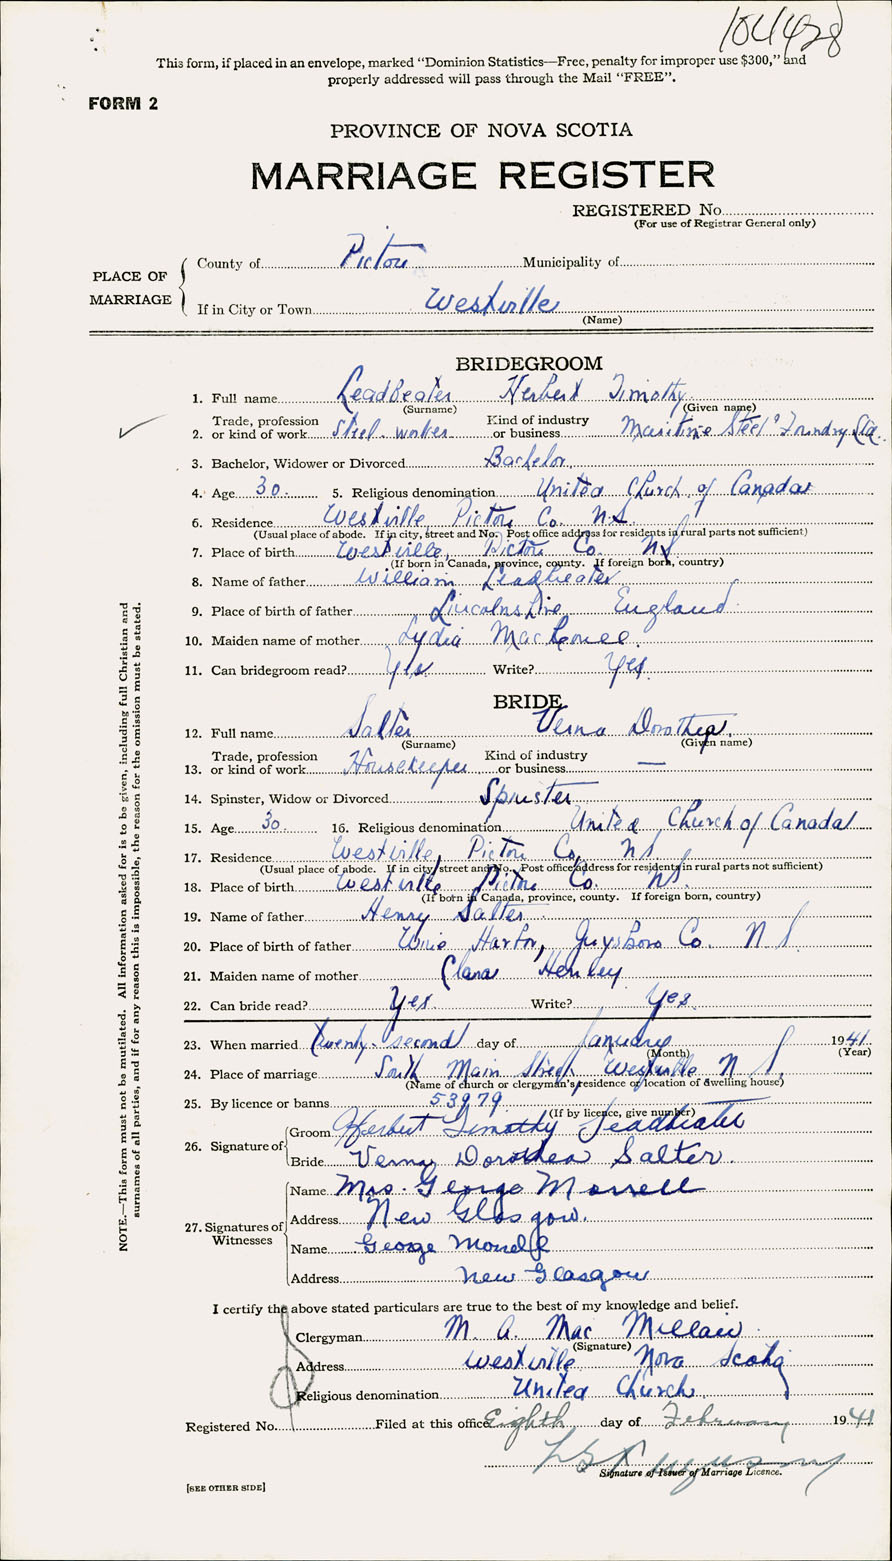 104428
This form, if placed in an envelope, marked "Dominion Statistics—Free, penalty for improper use $300," and
properly addressed will pass through the Mail "FREE".
FORM 2
PROVINCE OF NOVA SCOTIA
MARRIAGE REGISTER
REGISTERED No.
(For use of Registrar General only)
PLACE OF MARRIAGE
County of Pictou Municipality of
If in City or Town Westville
(Name)
BRIDEGROOM
1. Full name LeadBeater Herbert Timothy
(Surname) (Given name)
2. Trade, profession or kind of work Steel-worker Kind of industry or business Maritime Steel & Foundry Ltd.
3. Bachelor, Widower or Divorced Bachelor
4. Age 30. 5. Religious denomination United Church of Canada
6. Residence Westville, Pictou Co. N.S.
(Usual place of abode. If in city, street and No. Post office address for residents in rural parts not sufficient)
7. Place of birth Westville, Pictou Co. NS
(If born in Canada, province, county. If foreign born, country)
8. Name of father William Leadbeater
9. Place of birth of father Lincolnshire England
10. Maiden name of mother Lydia
11. Can bridegroom read? Yes Write? Yes
BRIDE
12. Full name Salter Verna Dorothea
(Surname) (Given name)
13. Trade, profession or kind of work Housekeeper Kind of industry or business —
14. Spinster, Widow or Divorced Spinster
15. Age 30. 16. Religious denomination United Church of Canada
17. Residence Westville, Pictou Co, NS
(Usual place of abode. If in city, street and No. Post office address for residents in rural parts not sufficient)
18. Place of birth Westville Pictou Co. NS.
(If born in Canada, province, county. If foreign born, country)
19. Name of father Henry Salter
20. Place of birth of father Wine Harbor, Guysboro Co. N S
21. Maiden name of mother Clara Henley
22. Can bride read? Yes Write? Yes
23. When married twenty-second day of January 1941
(Month) (Year)
24. Place of marriage South Main Street Westville N S.
(Name of church or clergyman's residence or location of dwelling house)
25. By licence or banns 53979
(If by licence, give number)
26. Signature of
Groom Herbert Timothy Leadbeater
Bride Verna Dorothea Salter
27. Signatures of Witnesses
Name Mrs. George Morrell
Address New Glasgow.
Name George Morrell
Address New Glasgow
I certify the above stated particulars are true to the best of my knowledge and belief.
Clergyman M. A. Mac Millan
(Signature)
Address Westville Nova Scotia
Religious denomination United Church
Registered No. Filed at this office Eighth day of February 1941
Signature of Issuer of Marriage Licence.
[SEE OTHER SIDE]
NOTE.—This form must not be mutilated. All Information asked for is to be given, including full Christian and
surnames of all parties, and if for any reason this is impossible, the reason for the omission must be stated.